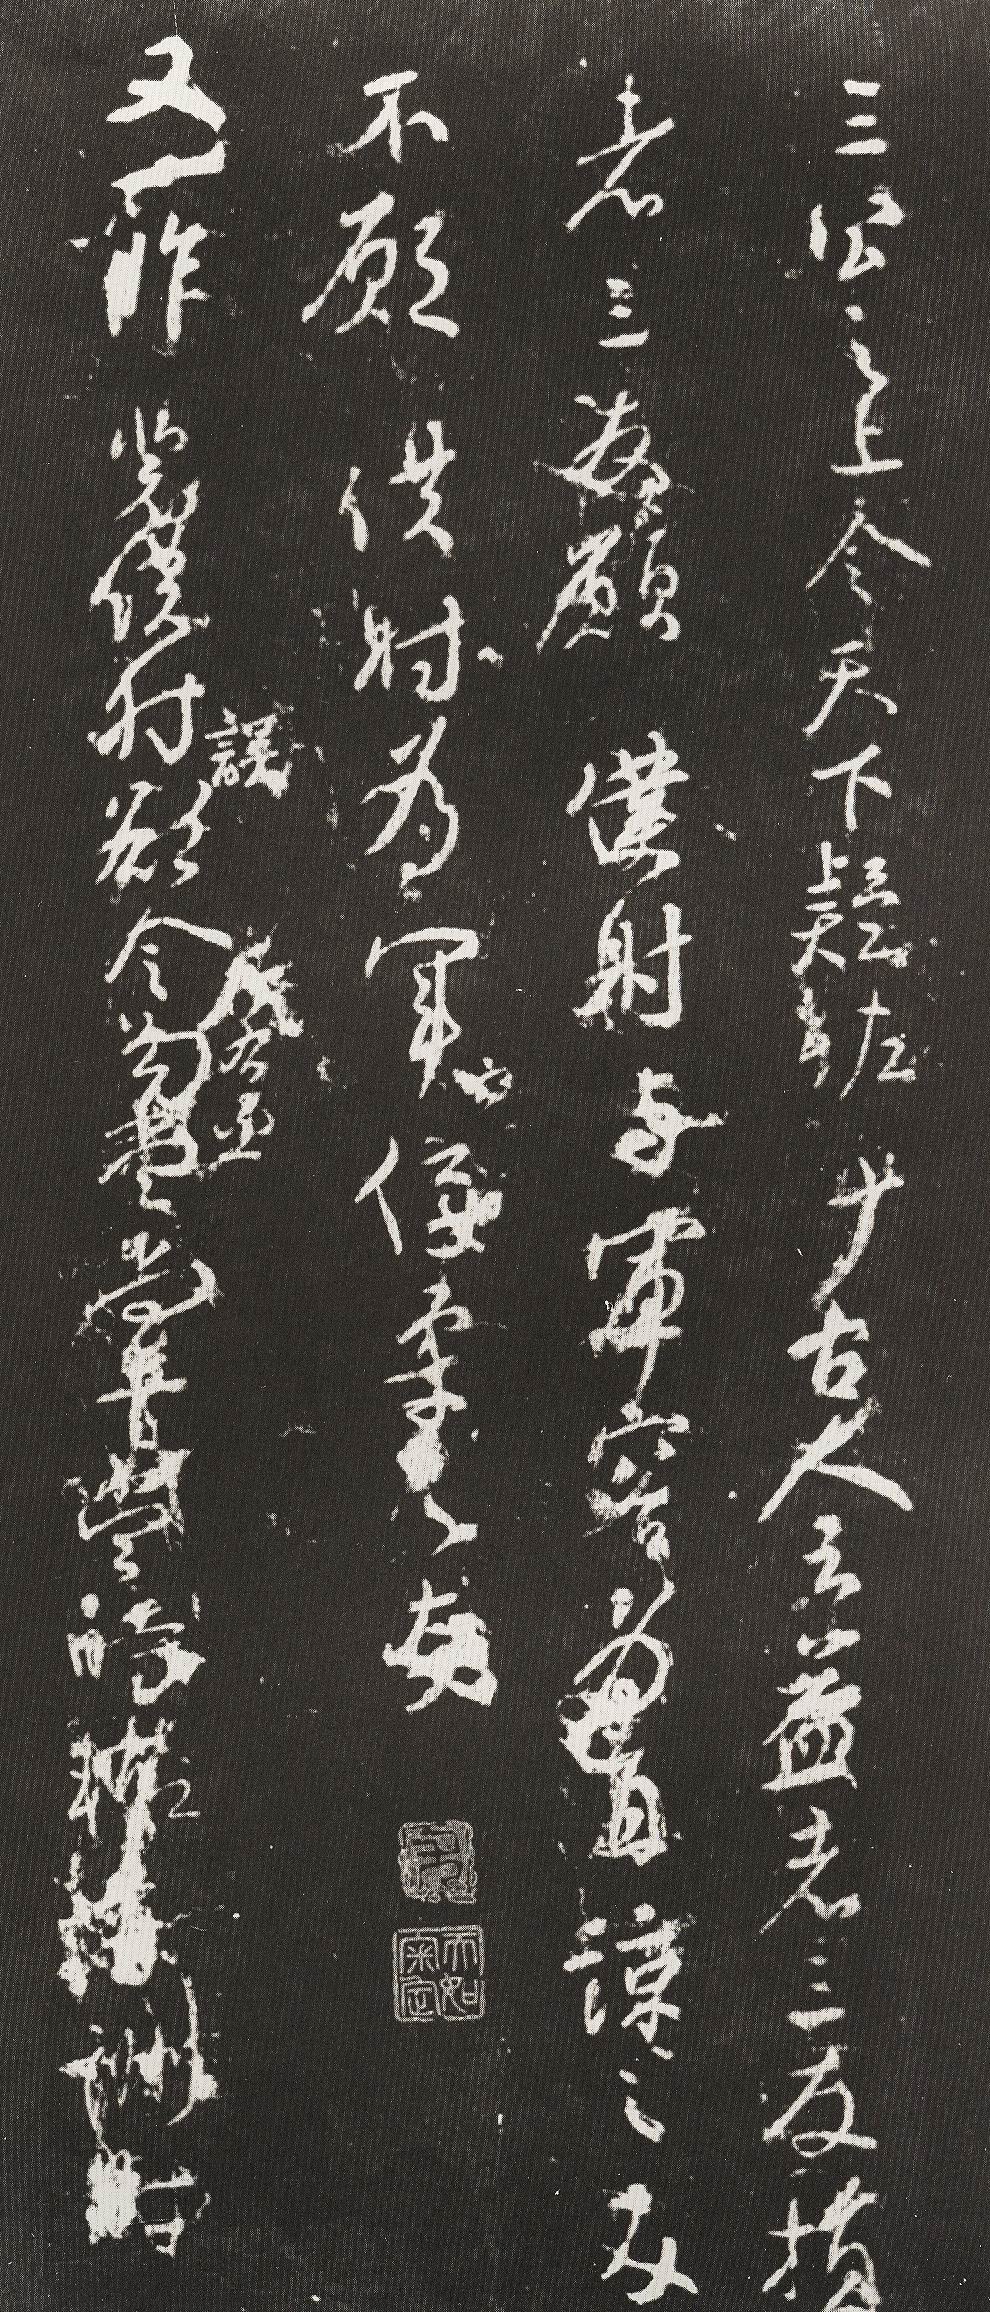 三公之上今天下疑少古人云益者三友損
者三友願僕射与軍容為直諒之友
不願僕射為軍容佞柔之友
又一昨裴僕射誤欲令左右丞勾當尚書當時輒有酬對